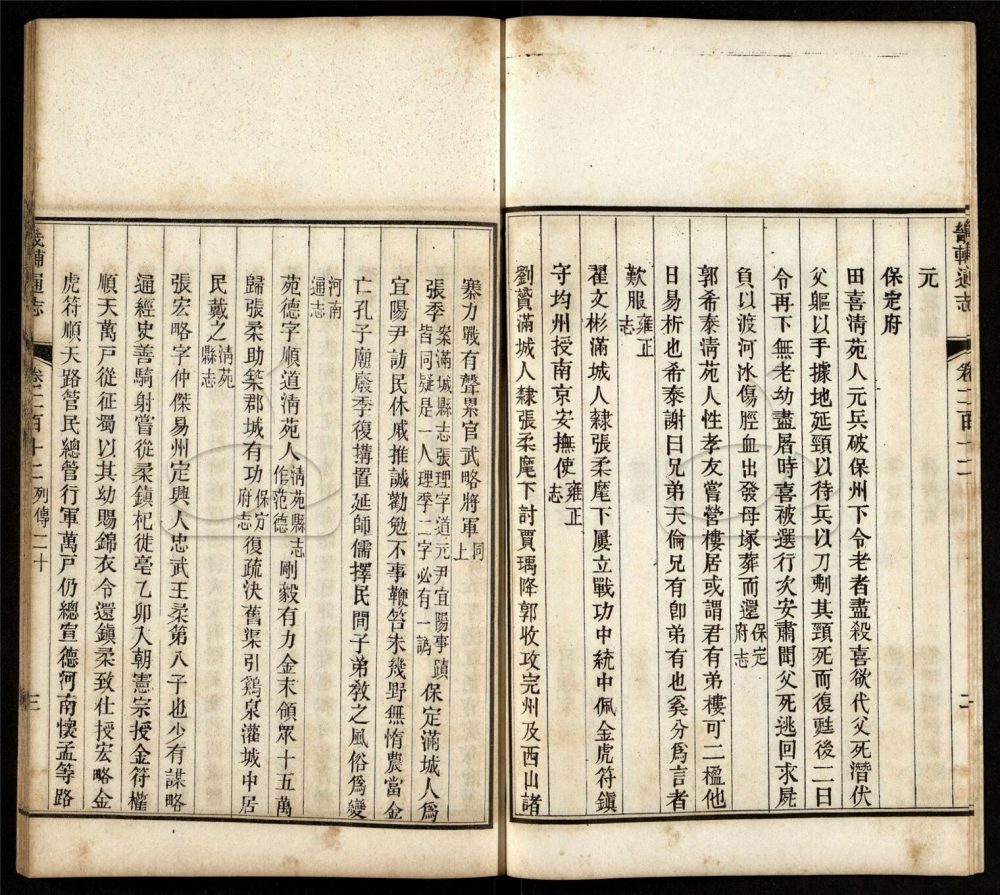 畿輔通志 卷二百十二 二
元
保定府
田喜淸苑人元兵破保州下令老者盡殺喜欲代父死潛伏
父軀以手據地延頸以待兵以刀剚其頸死而復甦後二日
令再下無老幼盡屠時喜被選行次安肅聞父死逃回求屍
負以渡河冰傷脛血出發母塚葬而還保定府志
郭希泰淸苑人性孝友嘗營樓居或謂君有弟樓可二楹他
日易析也希泰謝曰兄弟天倫兄有卽弟有也奚分爲言者
歎服雍正志
翟文彬滿城人隸張柔麾下屢立戰功中統中佩金虎符鎭
守均州授南京安撫使雍正志
劉贇滿城人隸張柔麾下討賈瑀降郭收攻完州及西山諸
寨力戰有聲累官武略將軍同上
張季案滿城縣志張理字道元尹宜陽事蹟皆同疑是一人理季二字必有一譌保定滿城人爲
宜陽尹訪民休戚推誠勸勉不事鞭笞未幾野無惰農當金
亡孔子廟廢季復搆置延師儒擇民間子弟敎之風俗爲變
河南通志
苑德字順道淸苑人淸苑縣志作范德剛毅有力金末領眾十五萬
歸張柔助築郡城有功保方府志復疏決舊渠引鷄泉灌城中居
民戴之淸苑縣志
張宏略字仲傑易州定興人忠武王柔第八子也少有謀略
通經史善騎射嘗從柔鎭杞徙亳乙卯入朝憲宗授金符權
順天萬戸從征蜀以其幼賜錦衣令還鎭柔致仕授宏略金
虎符順天路管民總管行軍萬戸仍總宣德河南懷孟等路
畿輔通志 卷二百十二 列傳二十 三